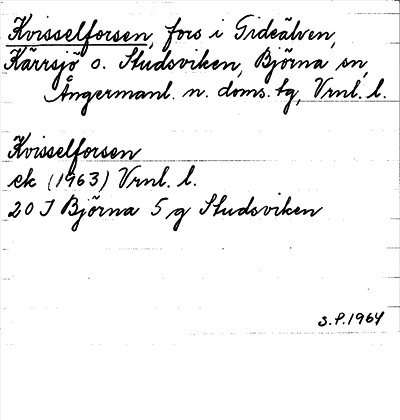 Kvisselforsen, fors i Gideälven,
Kärrsjö o. Studsviken, Björna sn,
Ångermanl. n. doms. tg, Vrnl. l.
Kvisselforsen
ek (1963) Vrnl. l.
20 J Björna 5 g Studsviken
S.P. 1964